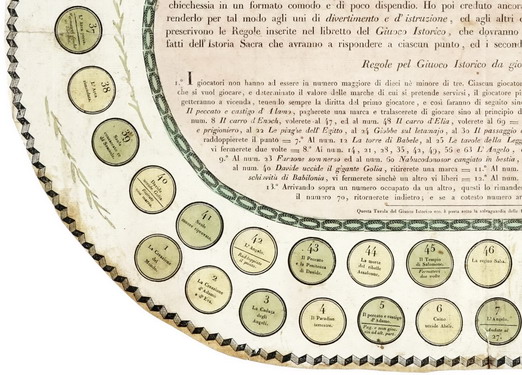 chicchessia in un formato comodo e di poco dispendio. Ho poi creduto ancor
renderlo per tal modo agli uni di divertimento e d'istruzione, ed agli altri
prescrivono le Regole inserite nel libretto del Giuoco Istorico, che dovranno
fatti dell'Istoria Sacra che avranno a rispondere a ciascun punto, ed i second
Regole pel Giuoco Istorico da gio
1.° I giocatori non hanno ad essere in numero maggiore di dieci nè minore di tre. Ciascun giocato
che si vuol giocare, e determinato il valore delle marche di cui si pretende servirsi, il giocatore pi
getteranno a vicenda, tenendo sempre la diritta del primo giocatore, e così faranno di seguito sin
Il peccato e castigo d'Adamo, pagherete una marca e tralascerete di giocare sino al principio d
num. 8 Il carro d'Enoch, volerete al 47, ed al num. 48 Il carro d'Elia, volerete al 69
e prigioniero, al 22 Le piaghe dell'Egitto, al 24 Giobbe sul letamajo, al 30 Il passaggio
raddoppierete il punto = 7.° Al num. 12 La torre di Babele, al 25 Le tavole della Legg
vi fermerete due volte = 8.° Ai num. 14, 21, 28, 35, 42, 49, 56 e 63 L'Angelo,
9.° Al num. 23 Farzone sommerso ed al num. 60 Nabucodonosor cangiato in bestia,
al num. 40 Davide uccide il gigante Golia, ritirerete una marca = 11.° Al num.
schiavitù di Babilonia, vi fermerete sinchè un altro vi liberi = 12.° Al num.
13.° Arrivando sopra un numero occupato da un altro, questi lo rimande
il numero 70, ritornerete indietro; e se a cotesto numero ar
Questa Tavola del Giuoco Istorico è posta sotto la salvaguardia delle
37
38
L'Arca
39
40
Davide
uccide
41
42
L'Angelo.
Raddoppiate
il punto.
43
Il Peccato
e la Penitenza
di Davide.
44
La morte
del ribelle
Assalonne.
45
Il Tempio
di Salomone.
Fermatevi
due volte
46
La regina Saba.
1
La Creazione
del
Mondo.
2
La Creazione
d'Adamo
e d'Eva.
3
La Caduta
degli
Angeli.
4
Il Paradiso
terrestre.
5
Il peccato e castigo
d'Adamo.
6
Caino
uccide Abele.
7
L'Angelo.
27.